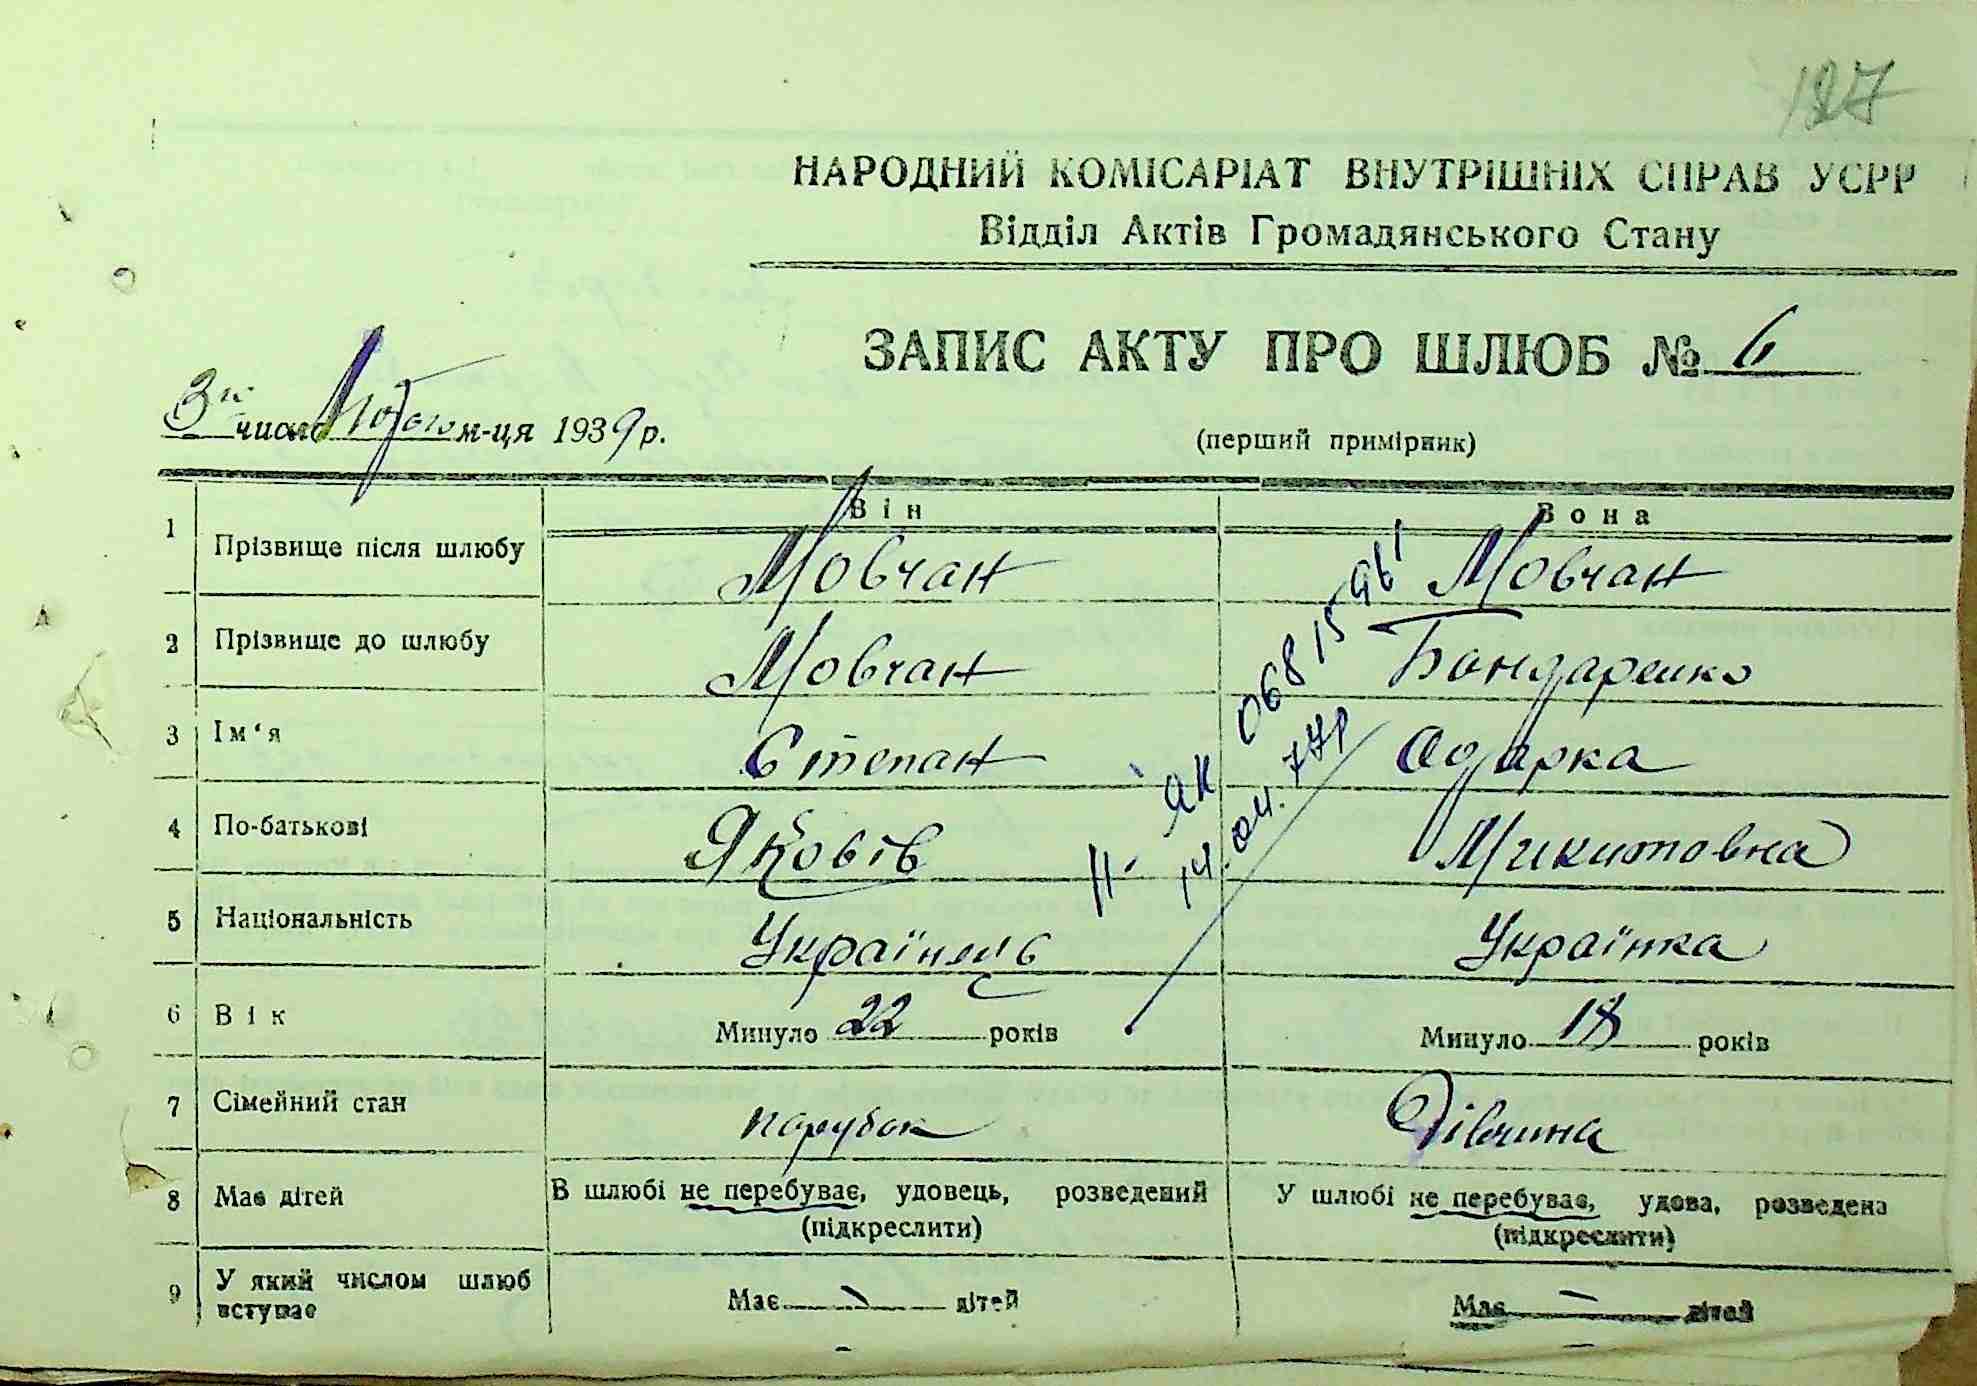 127
НАРОДНИЙ КОМІСАРІАТ ВНУТРІШНІХ СПРАВ УСРР
Відділ Актів Громадянського Стану
ЗАПИС АКТУ ПРО ШЛЮБ № 6
3го число Лютого м-ця 1939 р.
(перший примірник)
Він Вона
1 Прізвище після шлюбу Мовчан Мовчан
2 Прізвище до шлюбу Мовчан Бондаренко
3 Ім'я Степан Одарка
4 По-батькові Яковів Микитовна
5 Національність Українець Українка
6 Вік Минуло 22 років Минуло 18 років
7 Сімейний стан парубок Дівчина
8 Має дітей В шлюбі не перебуває, удовець, розведений У шлюбі не перебуває, удова, розведена
(підкреслити) (підкреслити)
9 У який числом шлюб вступає Має — дітей Має — дітей
14.04.77р